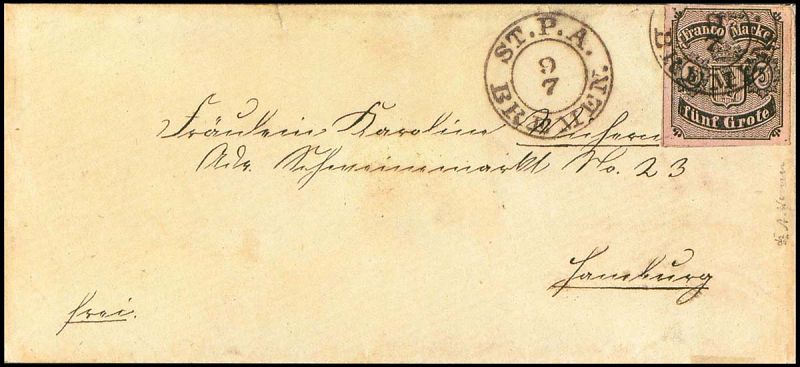 ST. P. A.
9
7
BREMEN.
Franco Marke
BREMEN
fünf Grote
Fräulein Karoline
Adr. Schweinemarkt No. 23
Hamburg
frei.